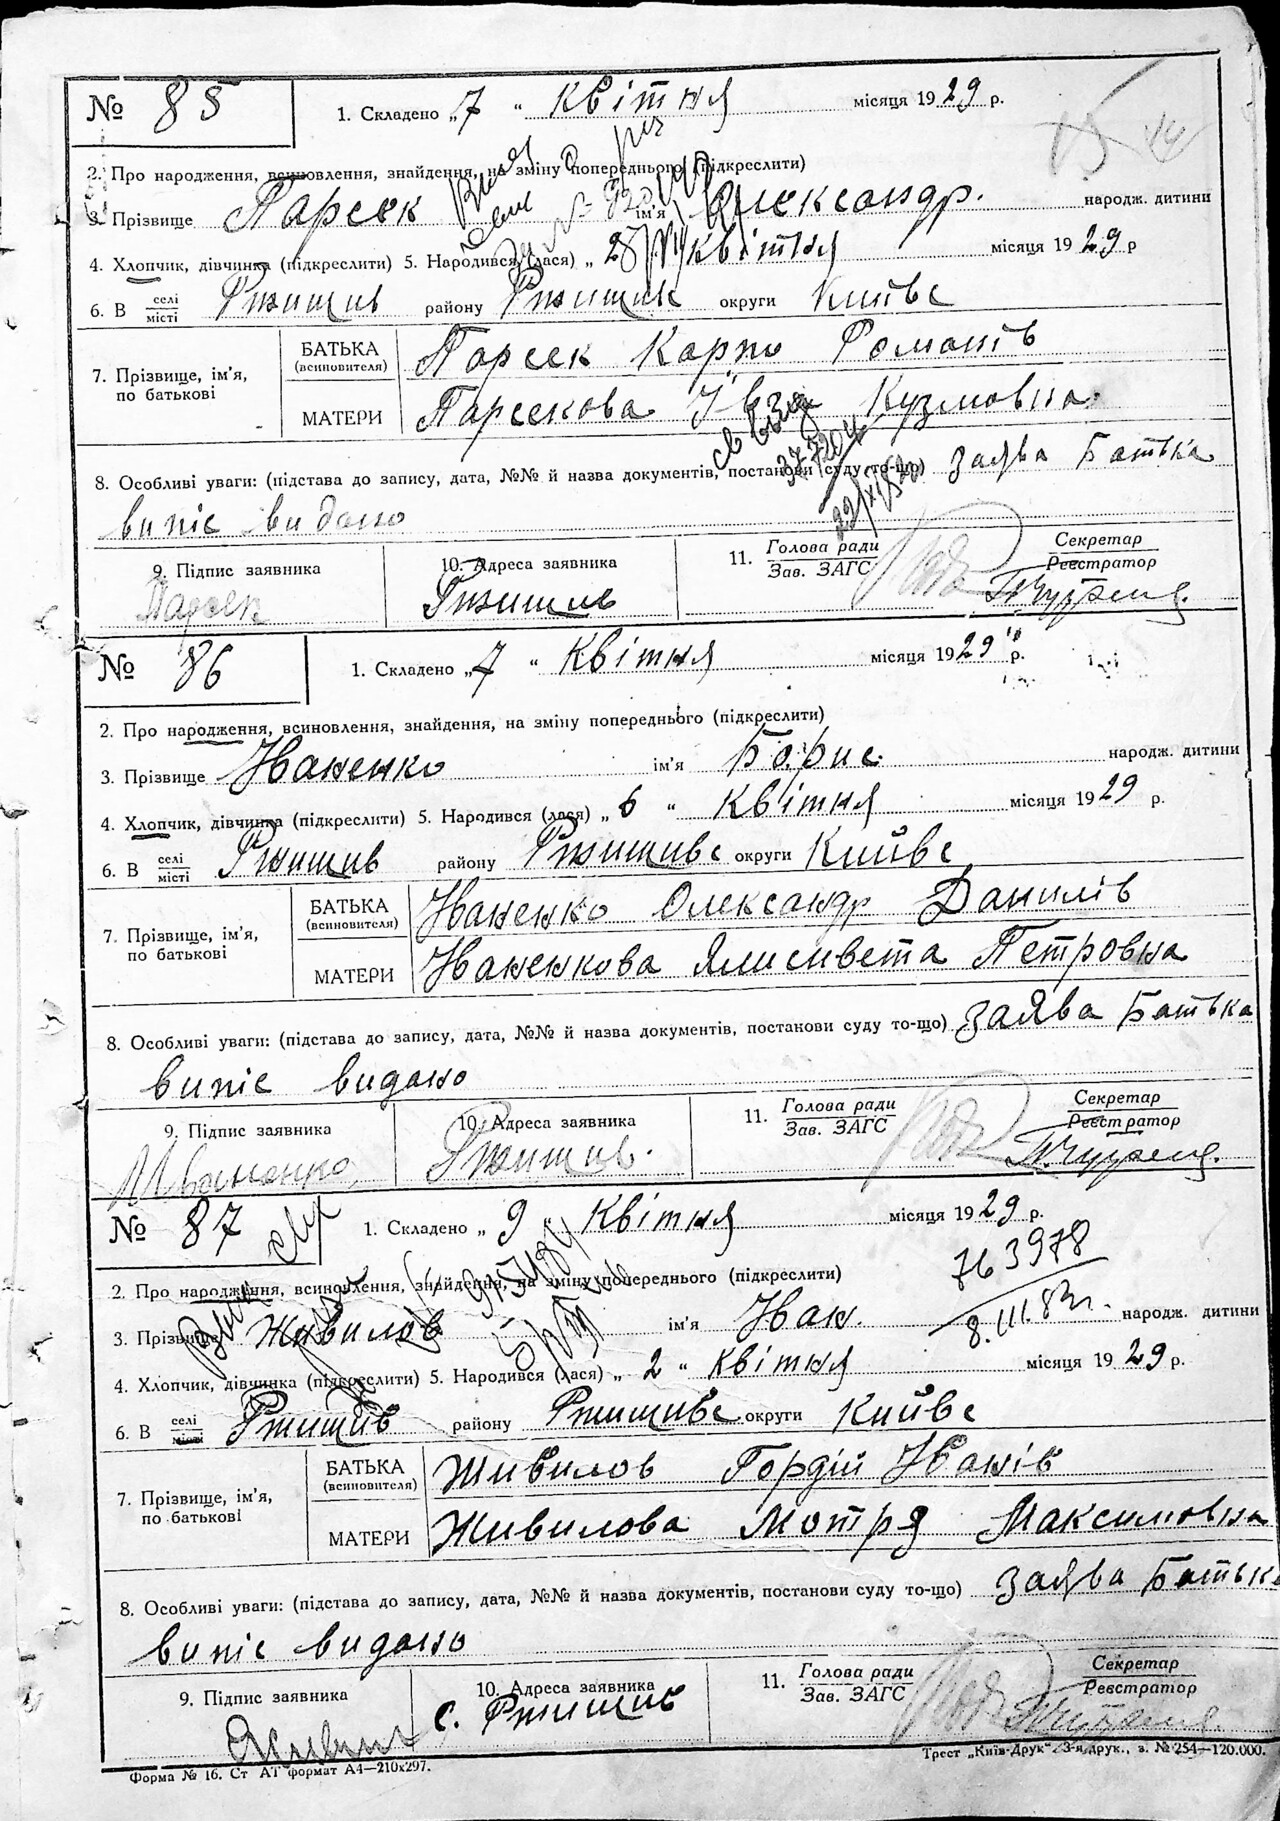 № 85
1. Складено „7“ квітня місяця 1929 р.
2. Про народження, всиновлення, знайдення, на зміну попереднього (підкреслити)
3. Прізвище Парсек ім'я Олександр. народж. дитини
4. Хлопчик, дівчинка (підкреслити) 5. Народився (лася) „ квітня місяця 1929 р
6. В селі/місті Ржищів району округи Київс
7. Прізвище, ім'я, по батькові
БАТЬКА (всиновителя) Парсек Карпо Романів
МАТЕРИ Парсекова Кузмовна.
8. Особливі уваги: (підстава до запису, дата, №№ й назва документів, постанови суду то-що) заява Батька
випіс видано
9. Підпис заявника
10. Адреса заявника
11. Голова ради
Зав. ЗАГС
Секретар
Реєстратор
Парсек
Ржищів
№ 86
1. Складено „7“ квітня місяця 1929 р.
2. Про народження, всиновлення, знайдення, на зміну попереднього (підкреслити)
3. Прізвище Іваненко ім'я Борис. народж. дитини
4. Хлопчик, дівчинка (підкреслити) 5. Народився (лася) „6“ квітня місяця 1929 р.
6. В селі/місті Ржищів району Ржищивс округи Київс
7. Прізвище, ім'я, по батькові
БАТЬКА (всиновителя) Іваненко Олександр Данилів
МАТЕРИ Іваненкова Ялисивета Петровна
8. Особливі уваги: (підстава до запису, дата, №№ й назва документів, постанови суду то-що) заява Батька
випіс видано
9. Підпис заявника
10. Адреса заявника
11. Голова ради
Зав. ЗАГС
Секретар
Реєстратор
Іваненко
Ржищів.
№ 87
1. Складено „9“ квітня місяця 1929 р.
763978
8.III.83г.
2. Про народження, всиновлення, знайдення, на зміну попереднього (підкреслити)
3. Прізвище Живилов ім'я Іван. народж. дитини
4. Хлопчик, дівчинка (підкреслити) 5. Народився (лася) „2“ квітня місяця 1929 р.
6. В селі/місті Ржищів району Ржищивс округи Київс
7. Прізвище, ім'я, по батькові
БАТЬКА (всиновителя) Живилов Гордій Іванів
МАТЕРИ Живилова Мотря Максимовна
8. Особливі уваги: (підстава до запису, дата, №№ й назва документів, постанови суду то-що) заява Батька
випіс видано
9. Підпис заявника
10. Адреса заявника
11. Голова ради
Зав. ЗАГС
Секретар
Реєстратор
с. Ржищив
Форма № 16. Ст АТ формат А4—210х297.
Трест „Київ-Друк“ 3-я друк., з. № 254—120.000.